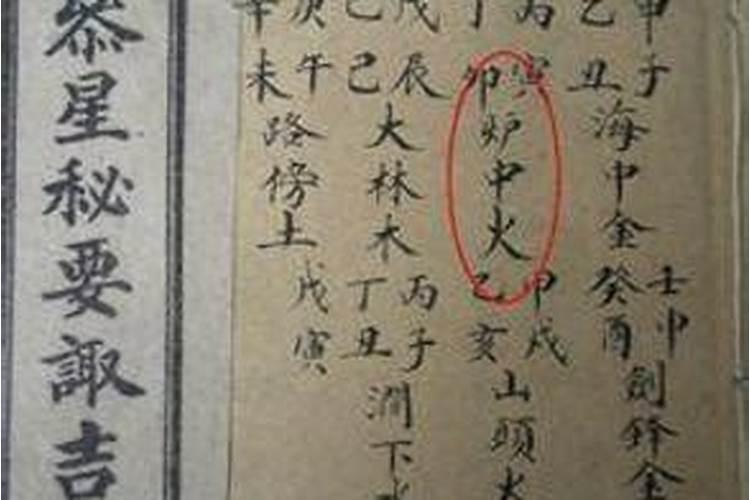 甲子乙丑海中金壬申癸酉劍鋒金
丙寅丁卯炉中火甲戌乙亥山頭火
戊辰己巳大林木丙子丁丑澗下水
庚午辛未路傍土戊寅
叅星秘要諏吉